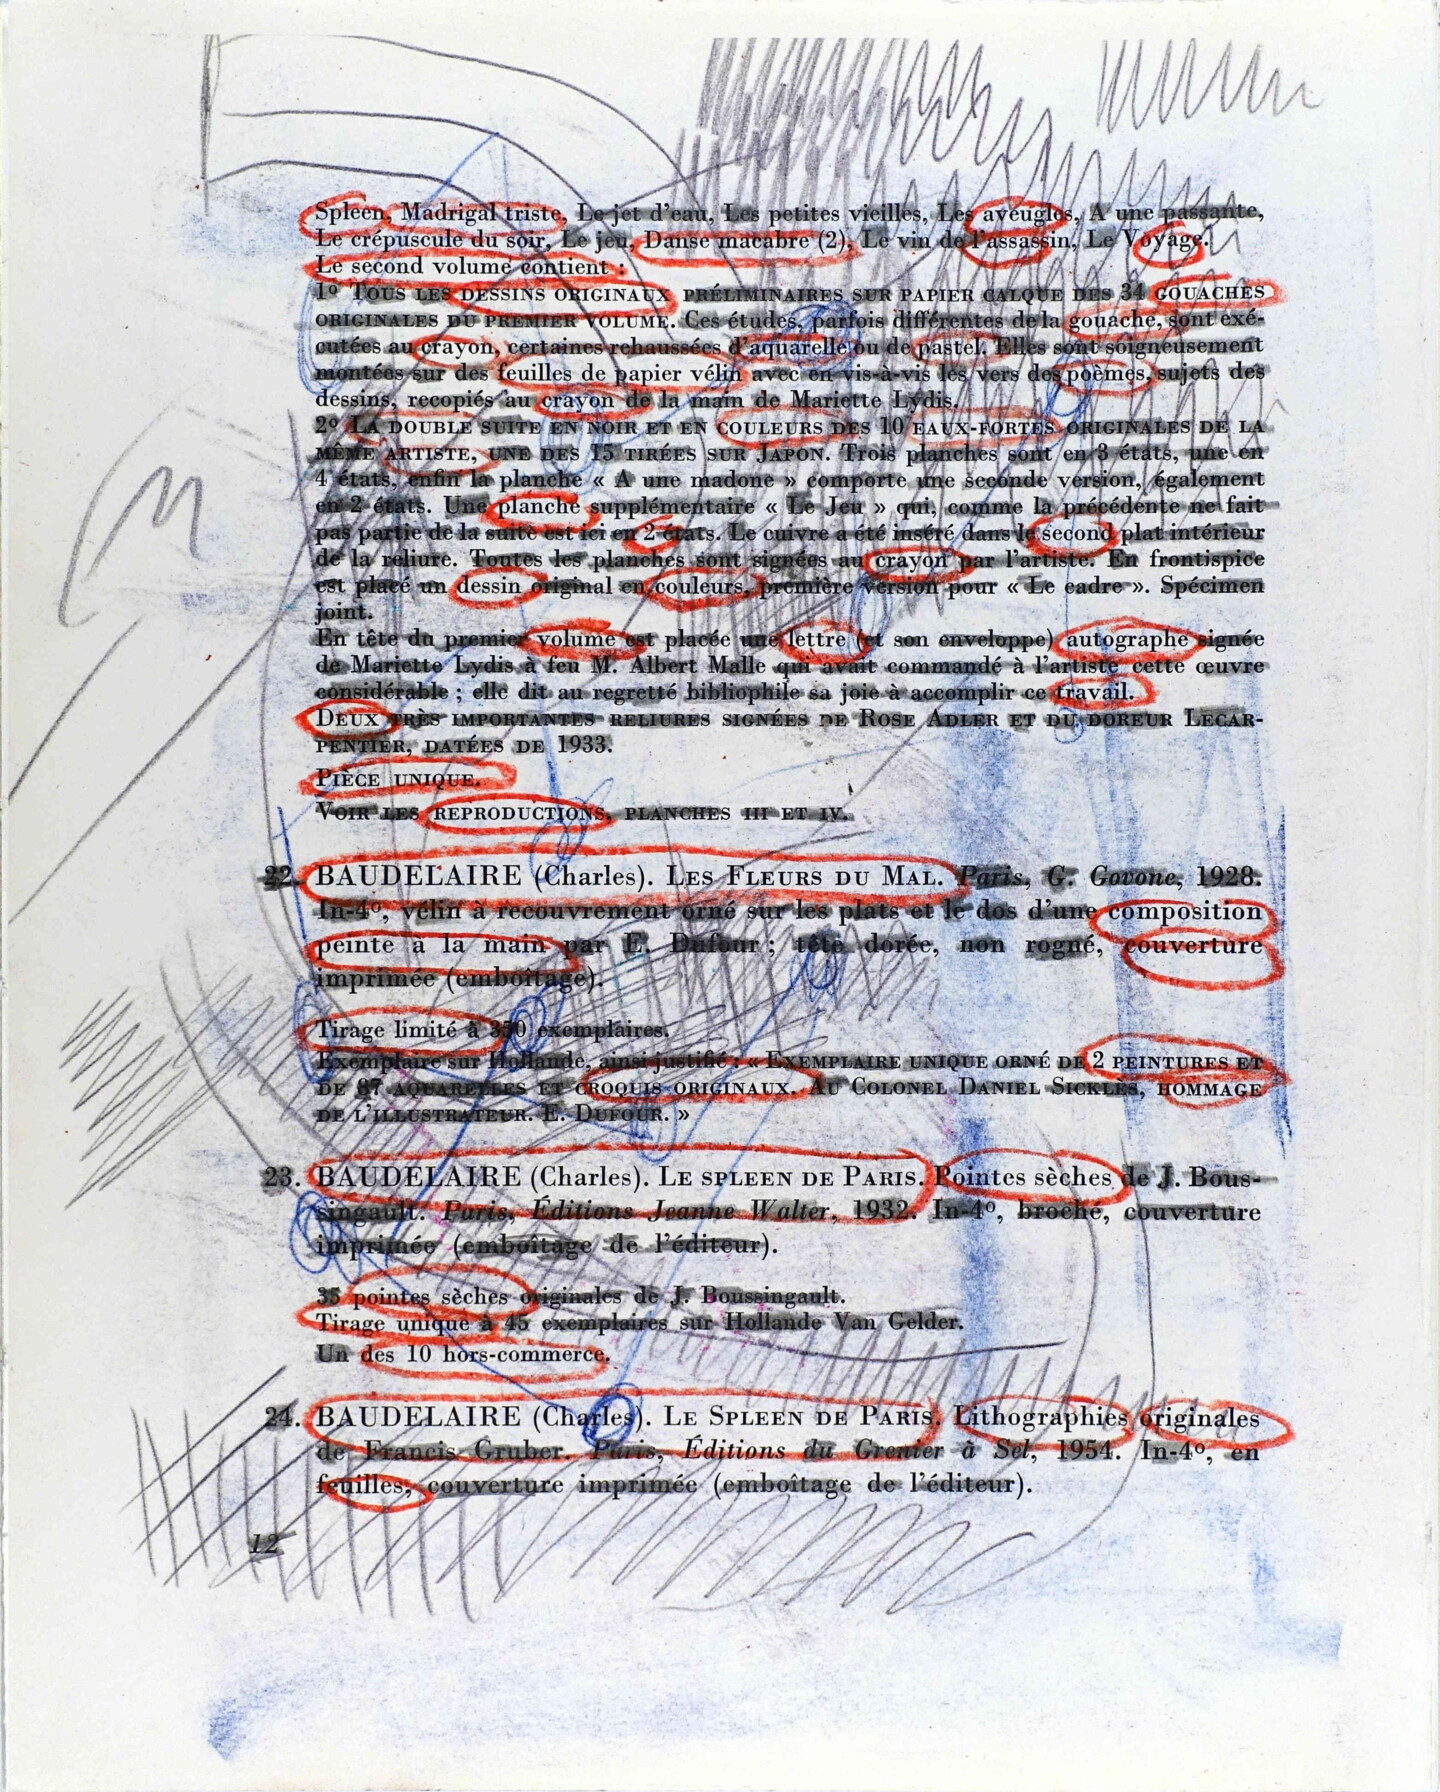 Spleen, Madrigal triste, Le jet d'eau, Les petites vieilles, Les aveugles, A une passante,
Le crépuscule du soir, Le jeu, Danse macabre (2), Le vin de l'assassin, Le Voyage.
Le second volume contient :
1º Tous les dessins originaux préliminaires sur papier calque des 34 gouaches
originales du premier volume. Ces études, parfois différentes de la gouache, sont exé-
cutées au crayon, certaines rehaussées d'aquarelle ou de pastel. Elles sont soigneusement
montées sur des feuilles de papier vélin avec en vis-à-vis les vers des poèmes, sujets des
dessins, recopiés au crayon de la main de Mariette Lydis.
2º La double suite en noir et en couleurs des 10 eaux-fortes originales de la
même artiste, une des 15 tirées sur Japon. Trois planches sont en 3 états, une en
4 états, enfin la planche « A une madone » comporte une seconde version, également
en 2 états. Une planche supplémentaire « Le Jeu » qui, comme la précédente ne fait
pas partie de la suite est ici en 2 états. Le cuivre a été inséré dans le second plat intérieur
de la reliure. Toutes les planches sont signées au crayon par l'artiste. En frontispice
est placé un dessin original en couleurs, première version pour « Le cadre ». Spécimen
joint.
En tête du premier volume est placée une lettre (et son enveloppe) autographe signée
de Mariette Lydis à feu M. Albert Malle qui avait commandé à l'artiste cette œuvre
considérable ; elle dit au regretté bibliophile sa joie à accomplir ce travail.
Deux très importantes reliures signées de Rose Adler et du doreur Lecar-
pentier, datées de 1933.
Pièce unique.
Voir les reproductions, planches III et IV.
22. BAUDELAIRE (Charles). Les Fleurs du Mal. Paris, G. Govone, 1928.
In-4º, vélin à recouvrement orné sur les plats et le dos d'une composition
peinte à la main par E. Dufour ; tête dorée, non rogné, couverture
imprimée (emboîtage).
Tirage limité à 350 exemplaires.
Exemplaire sur Hollande, ainsi justifié : « Exemplaire unique orné de 2 peintures et
de 87 aquarelles et croquis originaux. Au Colonel Daniel Sickles, hommage
de l'illustrateur. E. Dufour. »
23. BAUDELAIRE (Charles). Le spleen de Paris. Pointes sèches de J. Bous-
singault. Paris, Éditions Jeanne Walter, 1932. In-4º, broché, couverture
imprimée (emboîtage de l'éditeur).
35 pointes sèches originales de J. Boussingault.
Tirage unique à 45 exemplaires sur Hollande Van Gelder.
Un des 10 hors-commerce.
24. BAUDELAIRE (Charles). Le Spleen de Paris. Lithographies originales
de Francis Gruber. Paris, Éditions du Grenier à Sel, 1954. In-4º, en
feuilles, couverture imprimée (emboîtage de l'éditeur).
12